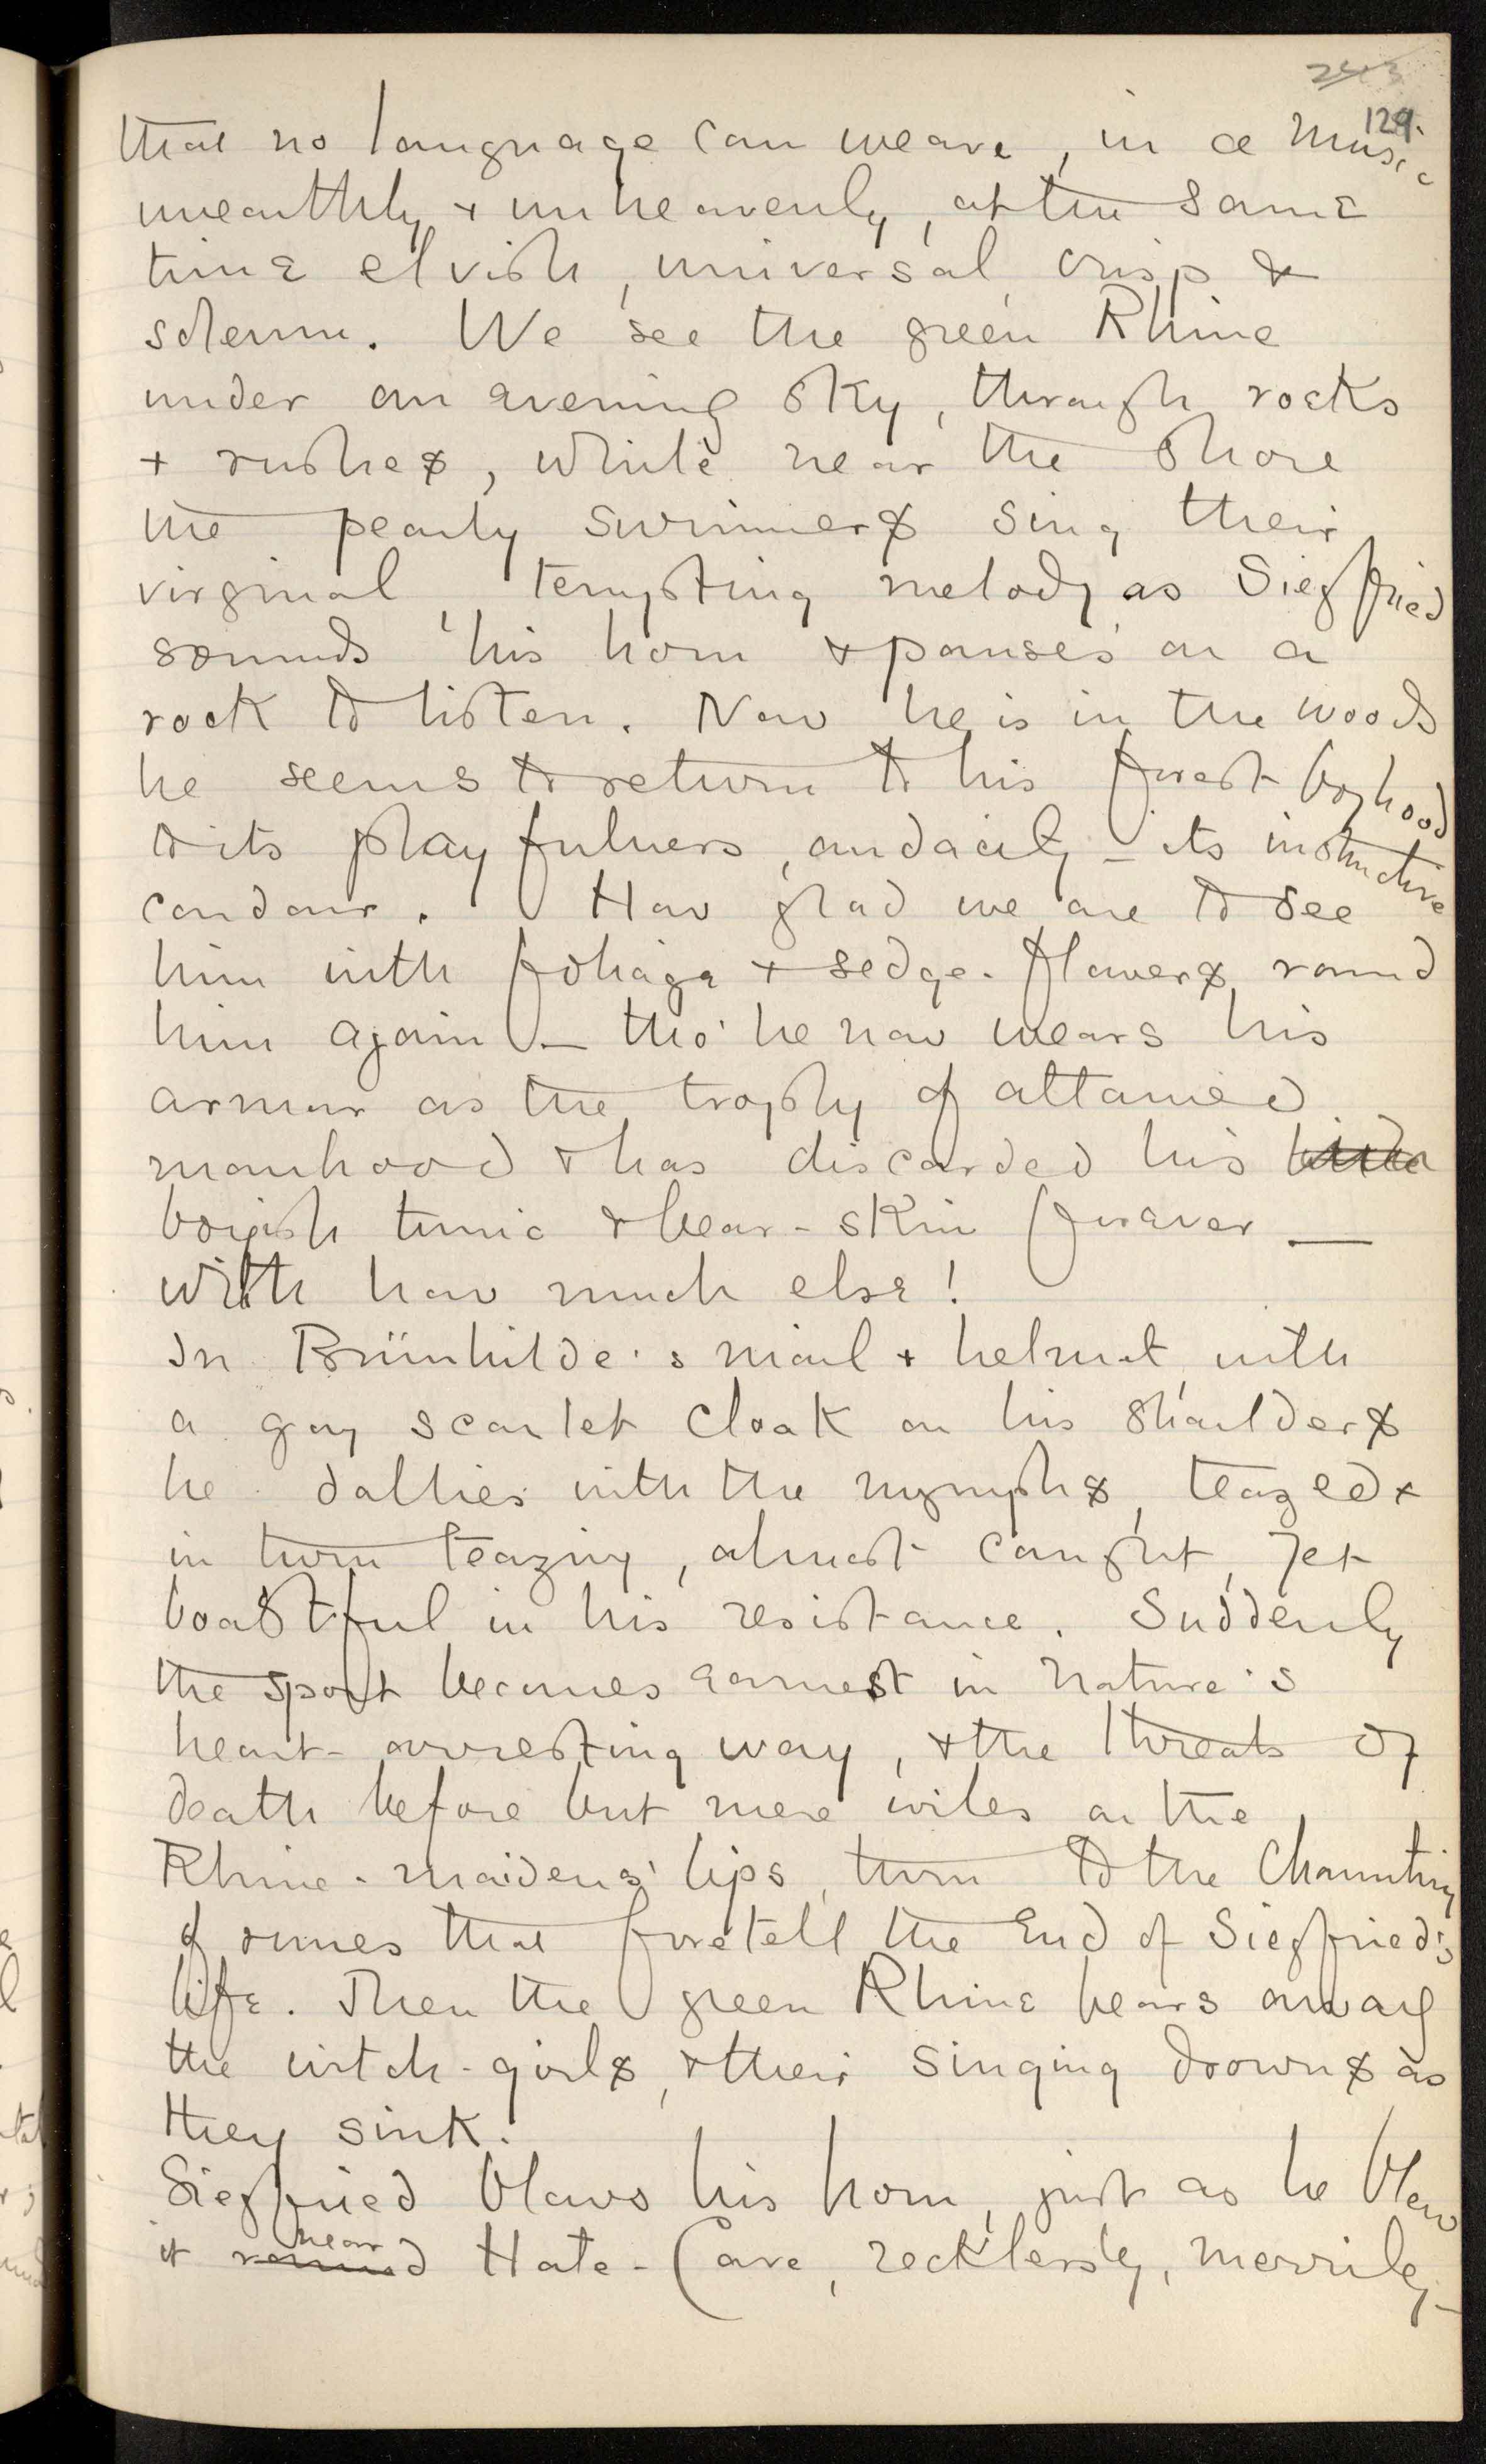 243
129.
that no language can weave, in a music
unearthly & unheavenly, at the same
time elvish, universal, crisp &
solemn. We see the green Rhine
under an evening sky, through rocks
+ rushes, while near the shore
the pearly swimmers sing their
virginal, tempting melody as Siegfried
sounds his horn & pauses on a
rock to listen. Now he is in the woods
he seems to return to his forest boyhood
to its playfulness, audacity - its instinctive
candour. How glad we are to see
him with foliage + sedge-flowers round
him again — tho' he now wears his
armour as the trophy of attained
manhood & has discarded his
boyish tunic & bear-skin forever —
with how much else!
In Brünnhilde's mail + helmet, with
a gay scarlet cloak on his shoulders
he dallies with the nymphs, teazed &
in turn teazing, almost caught, yet
boastful in his resistance. Suddenly
the sport becomes earnest in Nature's
heart-arresting way, & the threats of
death before but mere wiles on the
Rhine-maidens' lips, turn to the Chaunting
of runes that foretell the End of Siegfried's
life. Then the green Rhine bears away
the witch-girls, & their singing drowns as
they sink.
Siegfried blows his horn, just as he blew
it near Hate-Cave, recklessly, merrily —